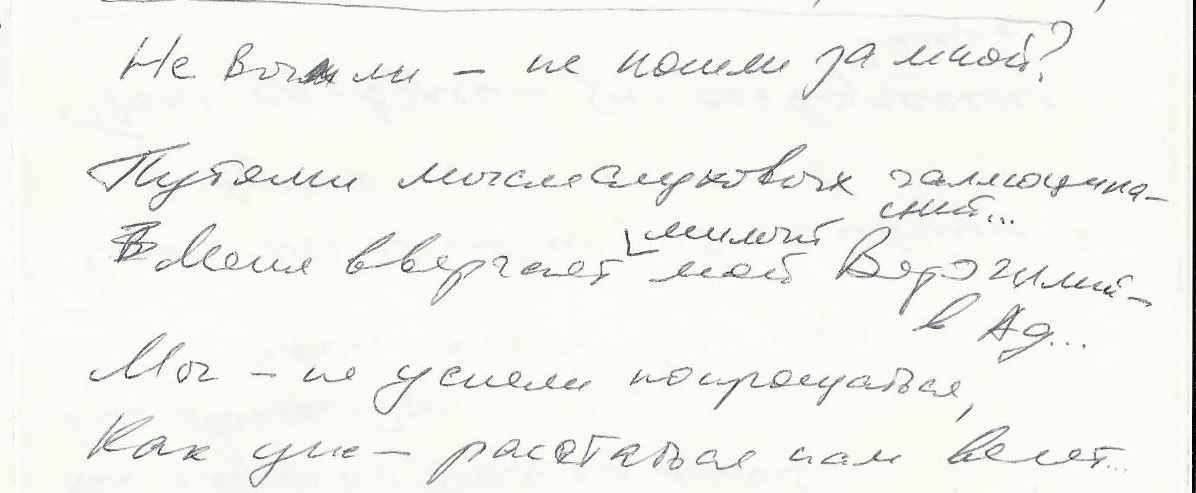 Не Вы ли – не пошли за мной?
Путями мыслеслуховых галлюцина-
ций...
Меня ввергает милый мой Вергилий –
в Ад...
Мы – не успели попрощаться,
Как уже – расстаться нам велят...